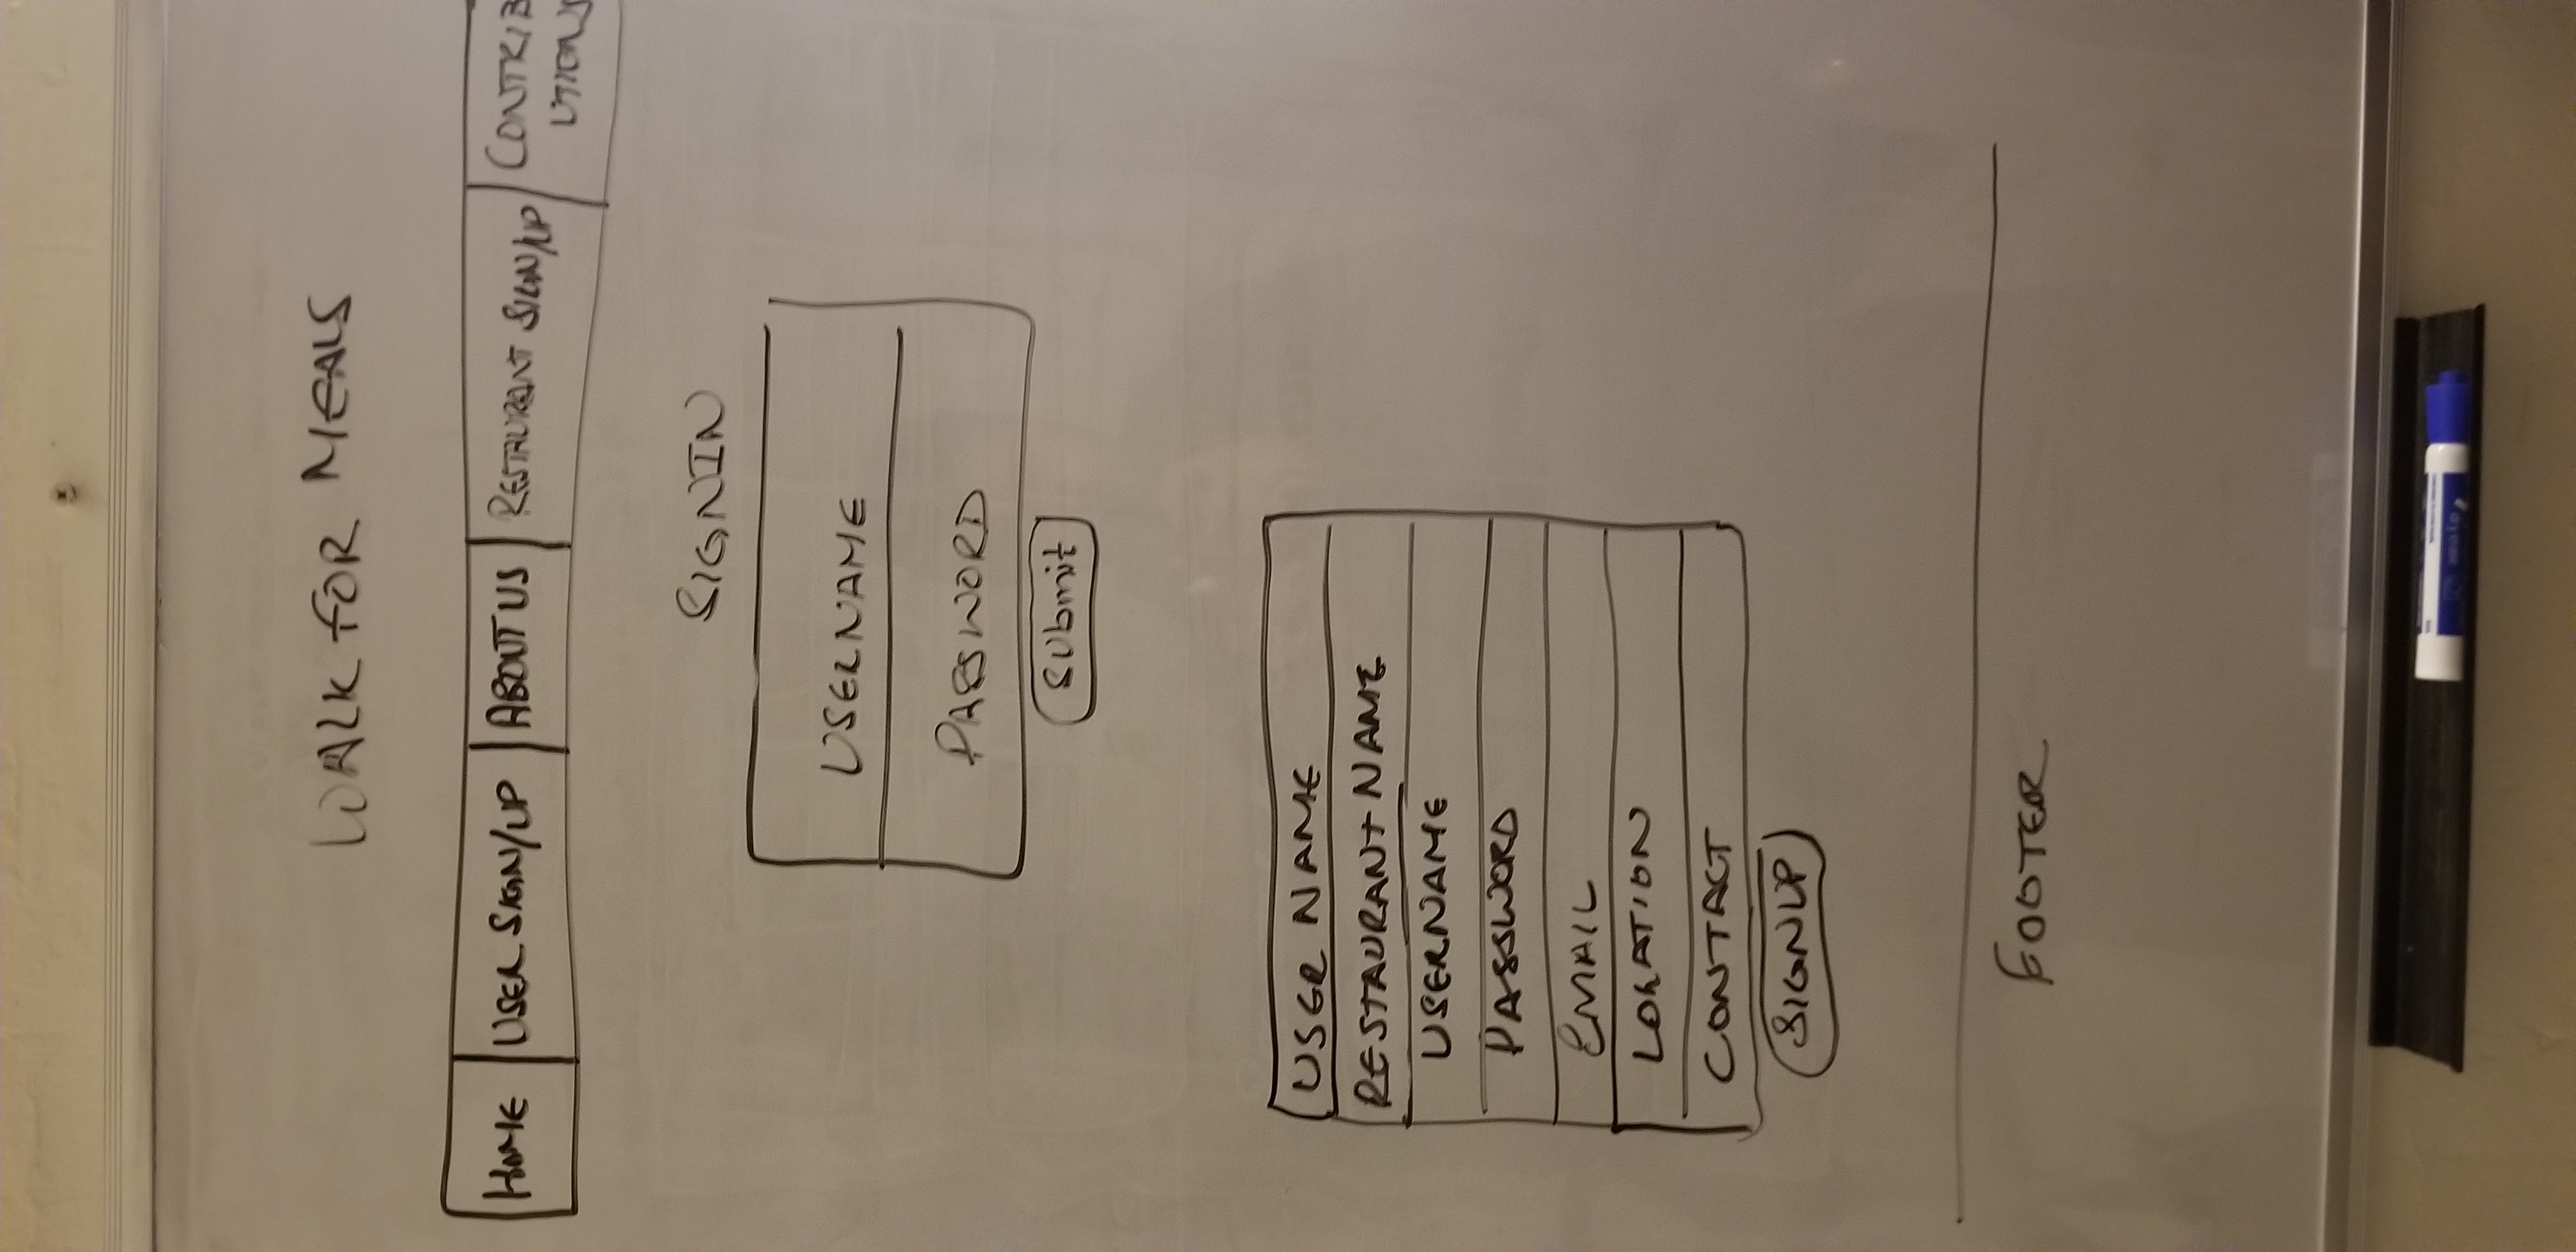 WALK FOR MEALS
HOME USER SIGN/UP ABOUT US RESTAURANT SIGN/UP CONTRIB
UTIONS
SIGNIN
USERNAME
PASSWORD
Submit
USER NAME
RESTAURANT NAME
USERNAME
PASSWORD
EMAIL
LOCATION
CONTACT
SIGNUP
FOOTER